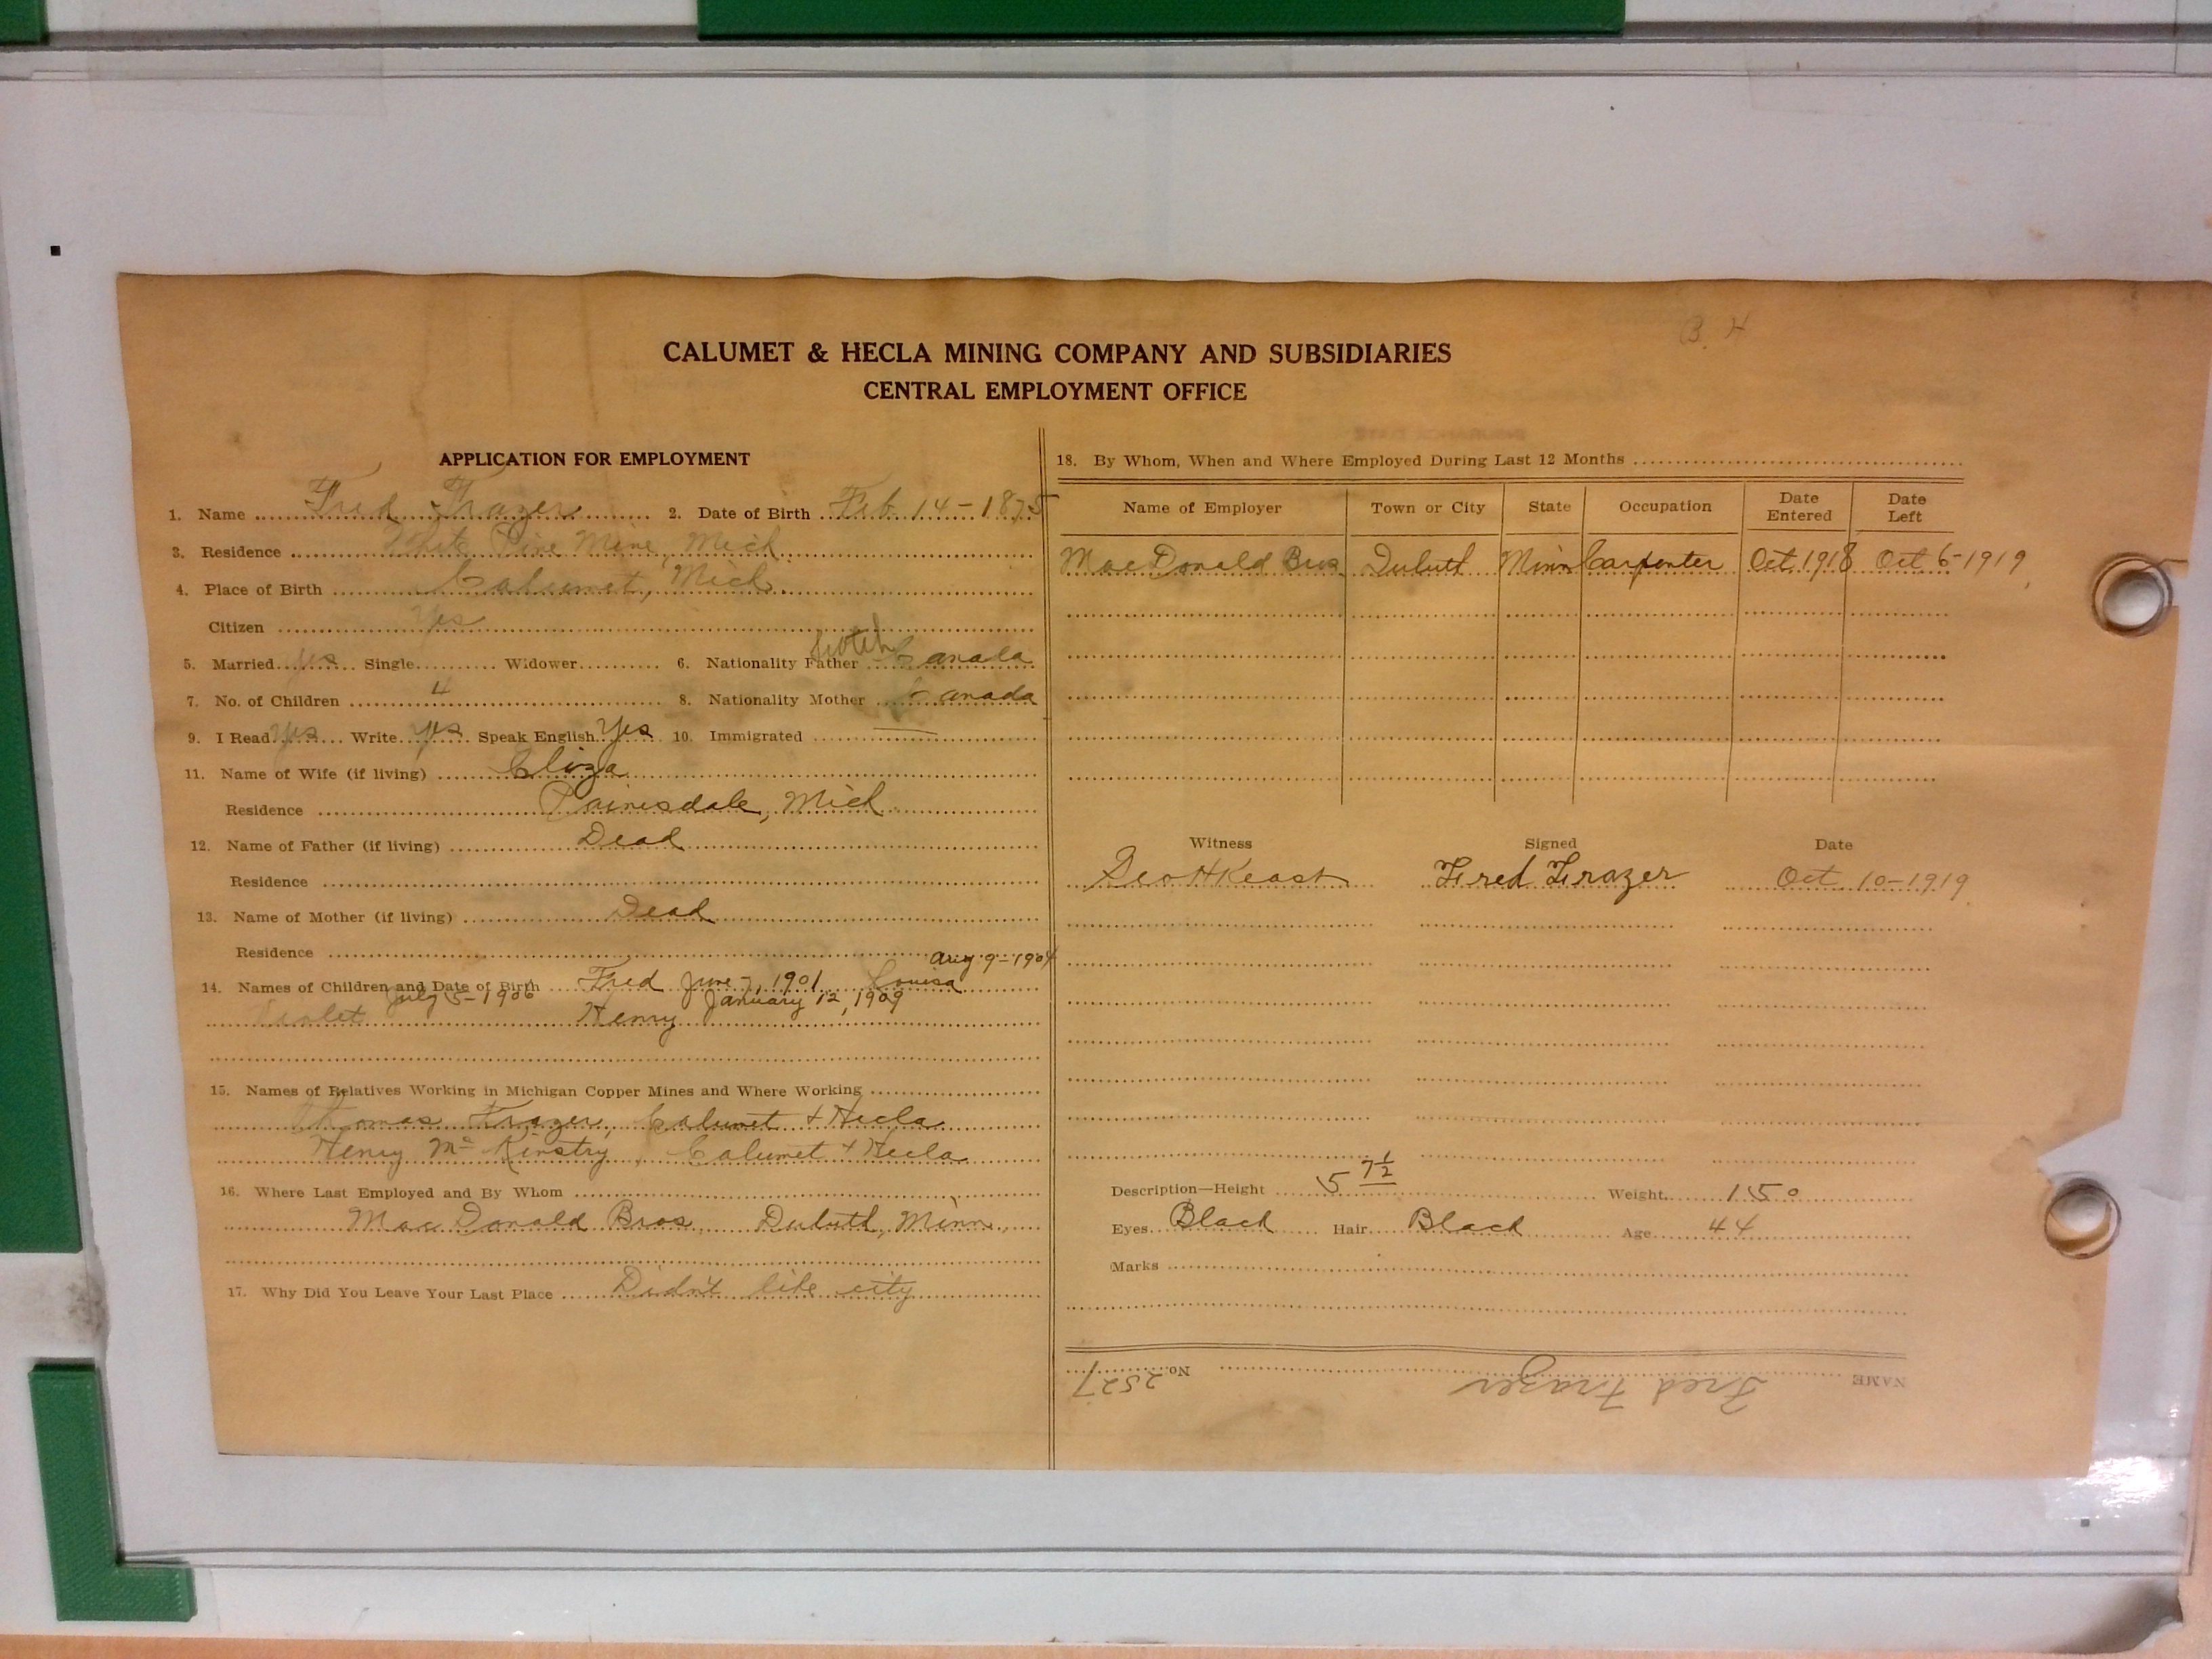 B. H
CALUMET & HECLA MINING COMPANY AND SUBSIDIARIES
CENTRAL EMPLOYMENT OFFICE
APPLICATION FOR EMPLOYMENT
1. Name Fred Frazer 2. Date of Birth Feb 14-1875
3. Residence White Pine Mine, Mich.
4. Place of Birth Calumet, Mich.
Citizen Yes
5. Married yes Single Widower 6. Nationality Father Scotch Canada
7. No. of Children 4 8. Nationality Mother Canada
9. I Read yes Write yes Speak English Yes 10. Immigrated —
11. Name of Wife (if living) Eliza
Residence Painesdale, Mich
12. Name of Father (if living) Dead
Residence
13. Name of Mother (if living) Dead
Residence
14. Names of Children and Date of Birth Fred June 7, 1901 Louisa Aug 9-1904
Violet July 5-1906 Henry January 12, 1909
15. Names of Relatives Working in Michigan Copper Mines and Where Working
Thomas Frazer, Calumet & Hecla
Henry Mc Kinstry, Calumet & Hecla
16. Where Last Employed and By Whom
Mac Donald Bros. Duluth, Minn.,
17. Why Did You Leave Your Last Place Didn't like city
18. By Whom, When and Where Employed During Last 12 Months
Name of Employer Town or City State Occupation Date Entered Date Left
Mac Donald Bros Duluth Minn Carpenter Oct 1918 Oct 6-1919
Witness Signed Date
Geo H Keast Fred Frazer Oct 10-1919
Description—Height 5 7 1/2 Weight 150
Eyes Black Hair Black Age 44
Marks
NAME Fred Frazer No. 2527